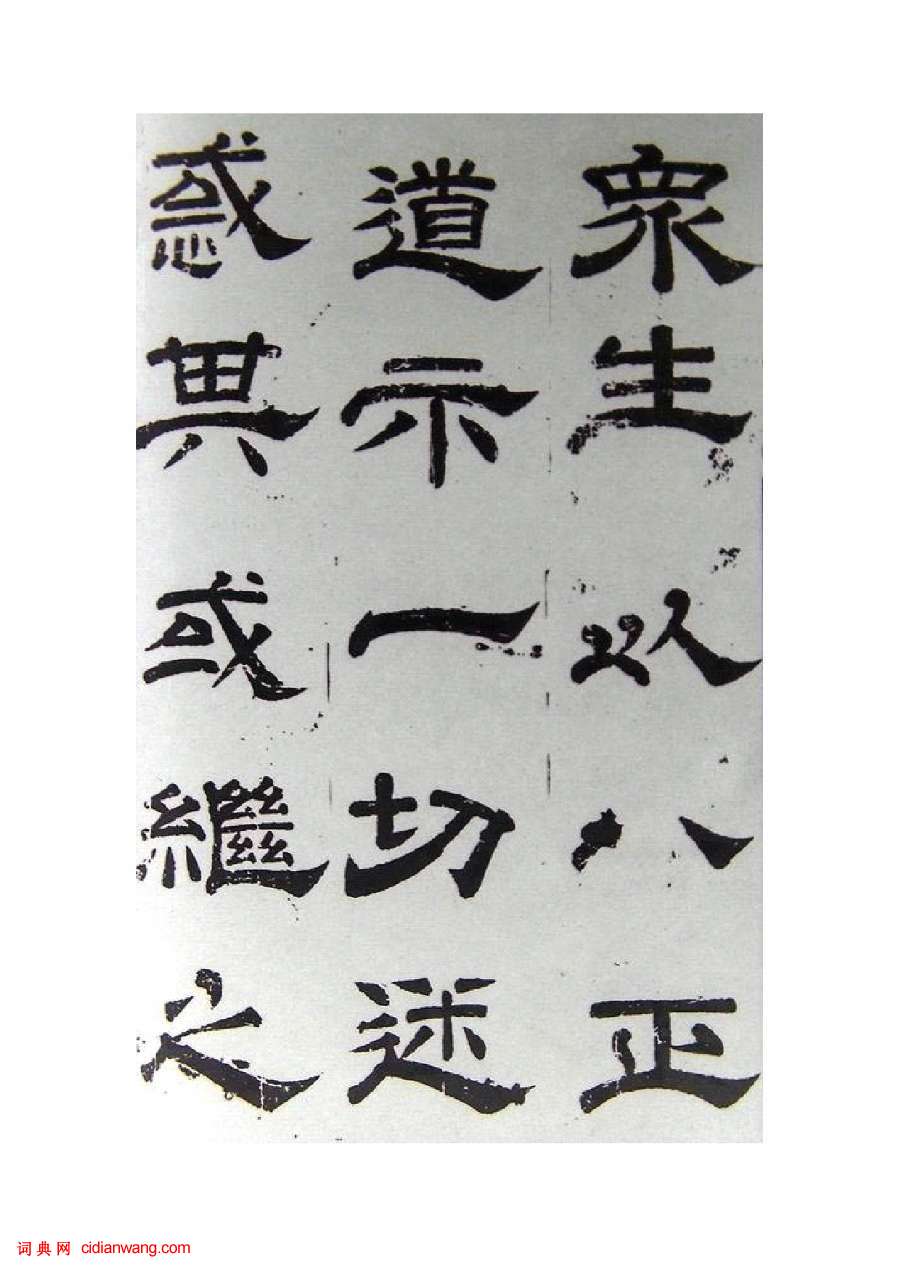 眾生以八正
道示一切迷
惑其或繼之
词典网 cidianwang.com